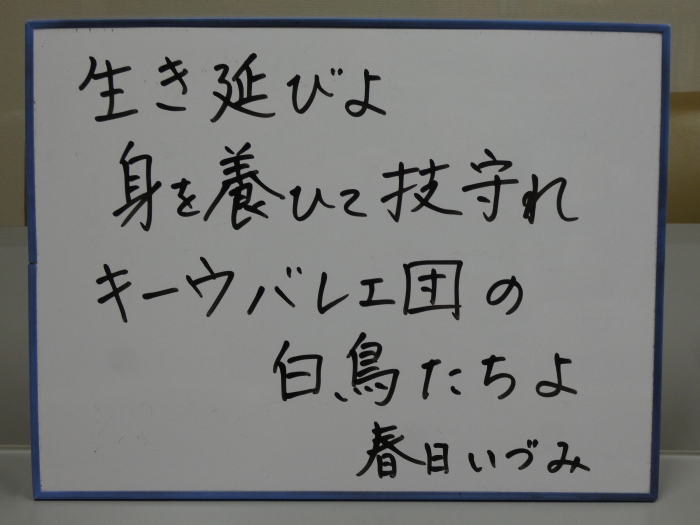 生き延びよ
身を養ひて技守れ
キーウバレエ団の
白鳥たちよ
春日いづみ